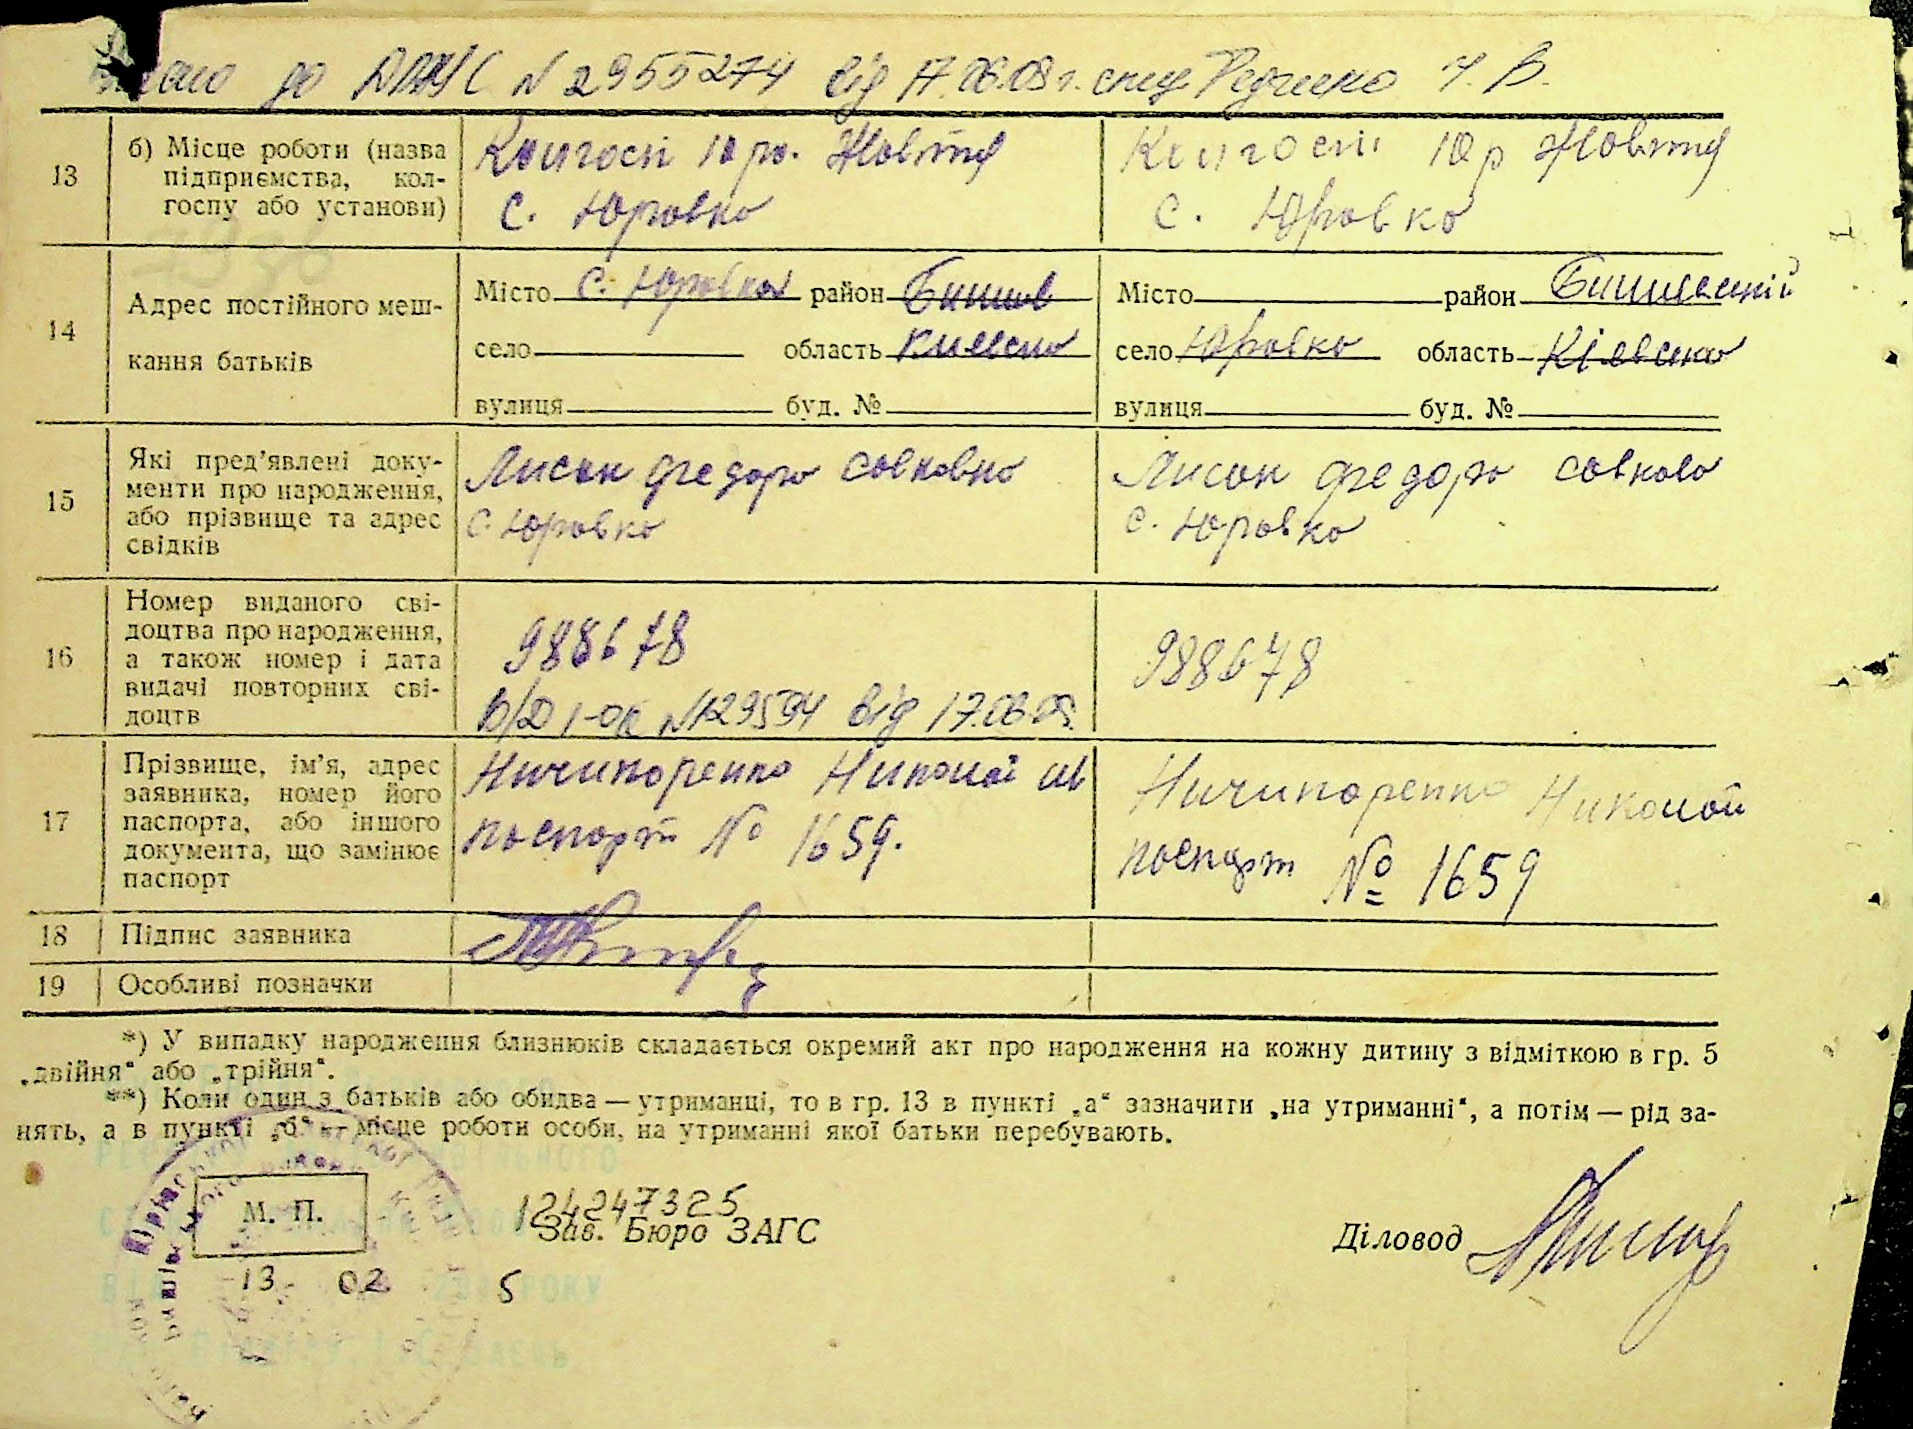 до ДРАЦС N 2955274 від 17.06.08 г. спец. Редченко
13
б) Місце роботи (назва підприємства, кол-
госпу або установи)
Колгосп 10 ро. Жовтня
с. Юровка
Колгосп 10 р Жовтня
с. Юровка
14
Адрес постійного меш-
кання батьків
Місто с. Юровка район Бишев
село область Киевска
вулиця буд. №
Місто район Бишевский
село Юровка область Кіевска
вулиця буд. №
15
Які пред'явлені доку-
менти про народження,
або прізвище та адрес
свідків
Лисак Федора Савковна
с. Юровка
Лисак Федора Савкова
с. Юровка
16
Номер виданого сві-
доцтва про народження,
а також номер і дата
видачі повторних сві-
доцтв
988678
I-ОК №129594 від 17.06.08
988678
17
Прізвище, ім'я, адрес
заявника, номер його
паспорта, або іншого
документа, що замінює
паспорт
Ничипоренко Николай
паспорт № 1659.
Ничипоренко Николай
паспорт № 1659
18
Підпис заявника
19
Особливі позначки
*) У випадку народження близнюків складається окремий акт про народження на кожну дитину з відміткою в гр. 5
„двійня“ або „трійня“.
**) Коли один з батьків або обидва — утриманці, то в гр. 13 в пункті „а“ зазначити „на утриманні“, а потім — рід за-
нять, а в пункті „б“ — місце роботи особи, на утриманні якої батьки перебувають.
М. П.
124247325
Зав. Бюро ЗАГС
Діловод
13 02 5
РОКУ